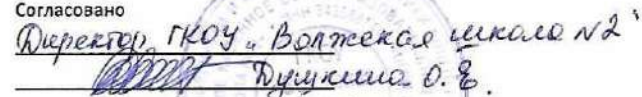 Согласовано
Директор ГКОУ „Волжская школа №2"
Душкина О. Е.